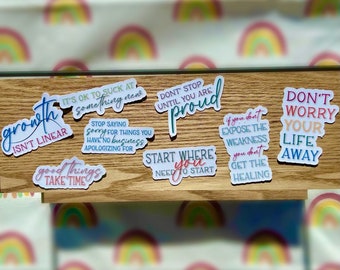 growth
ISN'T LINEAR
IT'S OK TO SUCK AT
something new
DON'T STOP
UNTIL YOU ARE
proud
STOP SAYING
sorry FOR THINGS YOU
HAVE NO business
APOLOGIZING FOR
good things
TAKE TIME
START WHERE
you
NEED TO START
if you don't
EXPOSE THE
WEAKNESS
you don't
GET THE
HEALING
DON'T
WORRY
YOUR
LIFE
AWAY